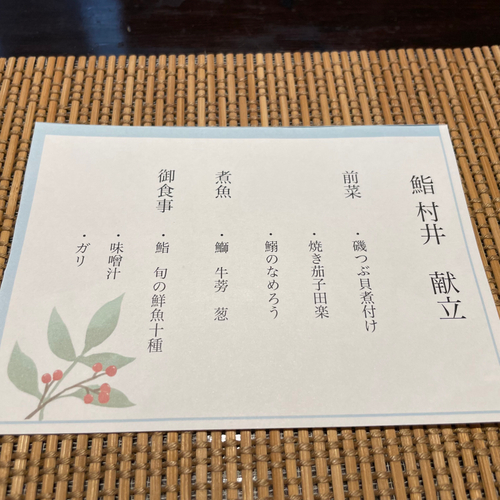 鮨村井 献立
前菜
・磯つぶ貝煮付け
・焼き茄子田楽
・鰯のなめろう
煮魚
・鰤 牛蒡 葱
御食事
・鮨 旬の鮮魚十種
・味噌汁
・ガリ